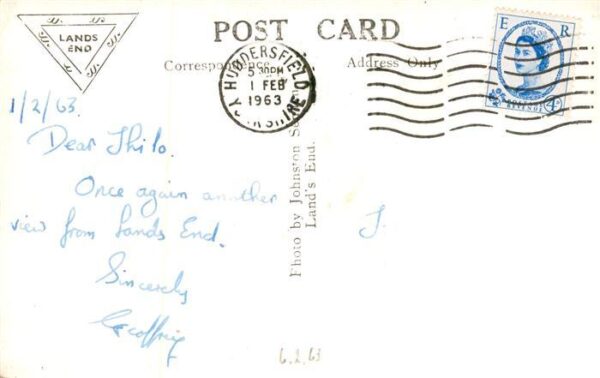 LANDS
END
POST CARD
Correspondence
Address Only
HUDDERSFIELD
YORKSHIRE
5 30PM
1 FEB
1963
E R
POSTAGE
REVENUE
4D
1/2/63.
Dear Thilo.
Once again another
view from Lands End.
Sincerely
Geoffrey
Photo by Johnston
Land's End.
J.
6.2.63